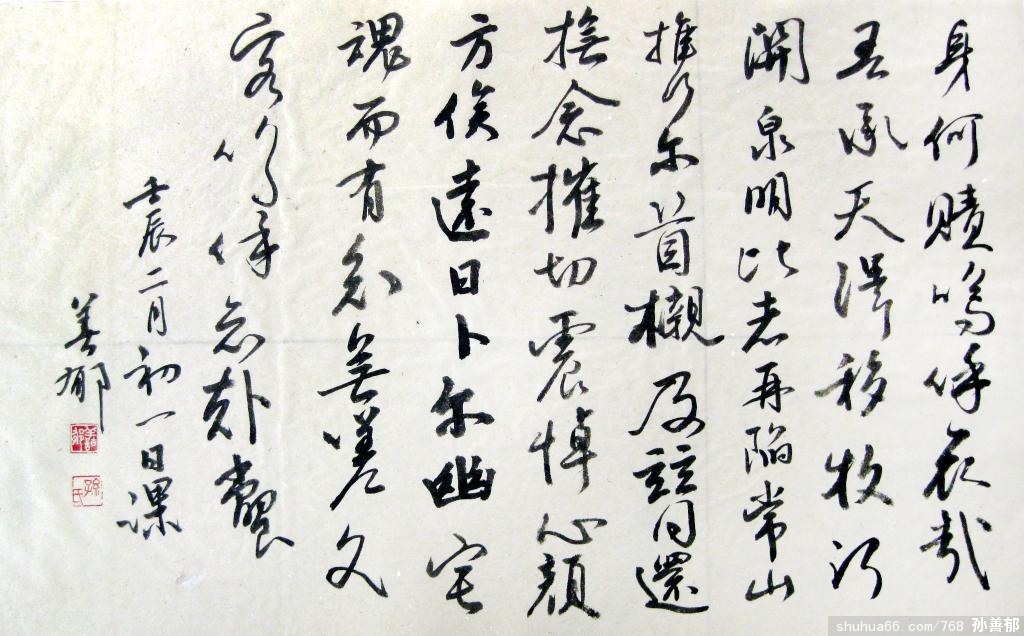 身何贖嗚呼哀哉
吾承天澤移牧河
關泉明比者再陷常山
攜尔首櫬及茲同還
撫念摧切震悼心顏
方俟遠日卜尔幽宅
魂而有知無嗟久
客嗚呼哀哉尚饗
壬辰二月初一日課
善郁
孫氏
shuhua66.com/768 孙善郁